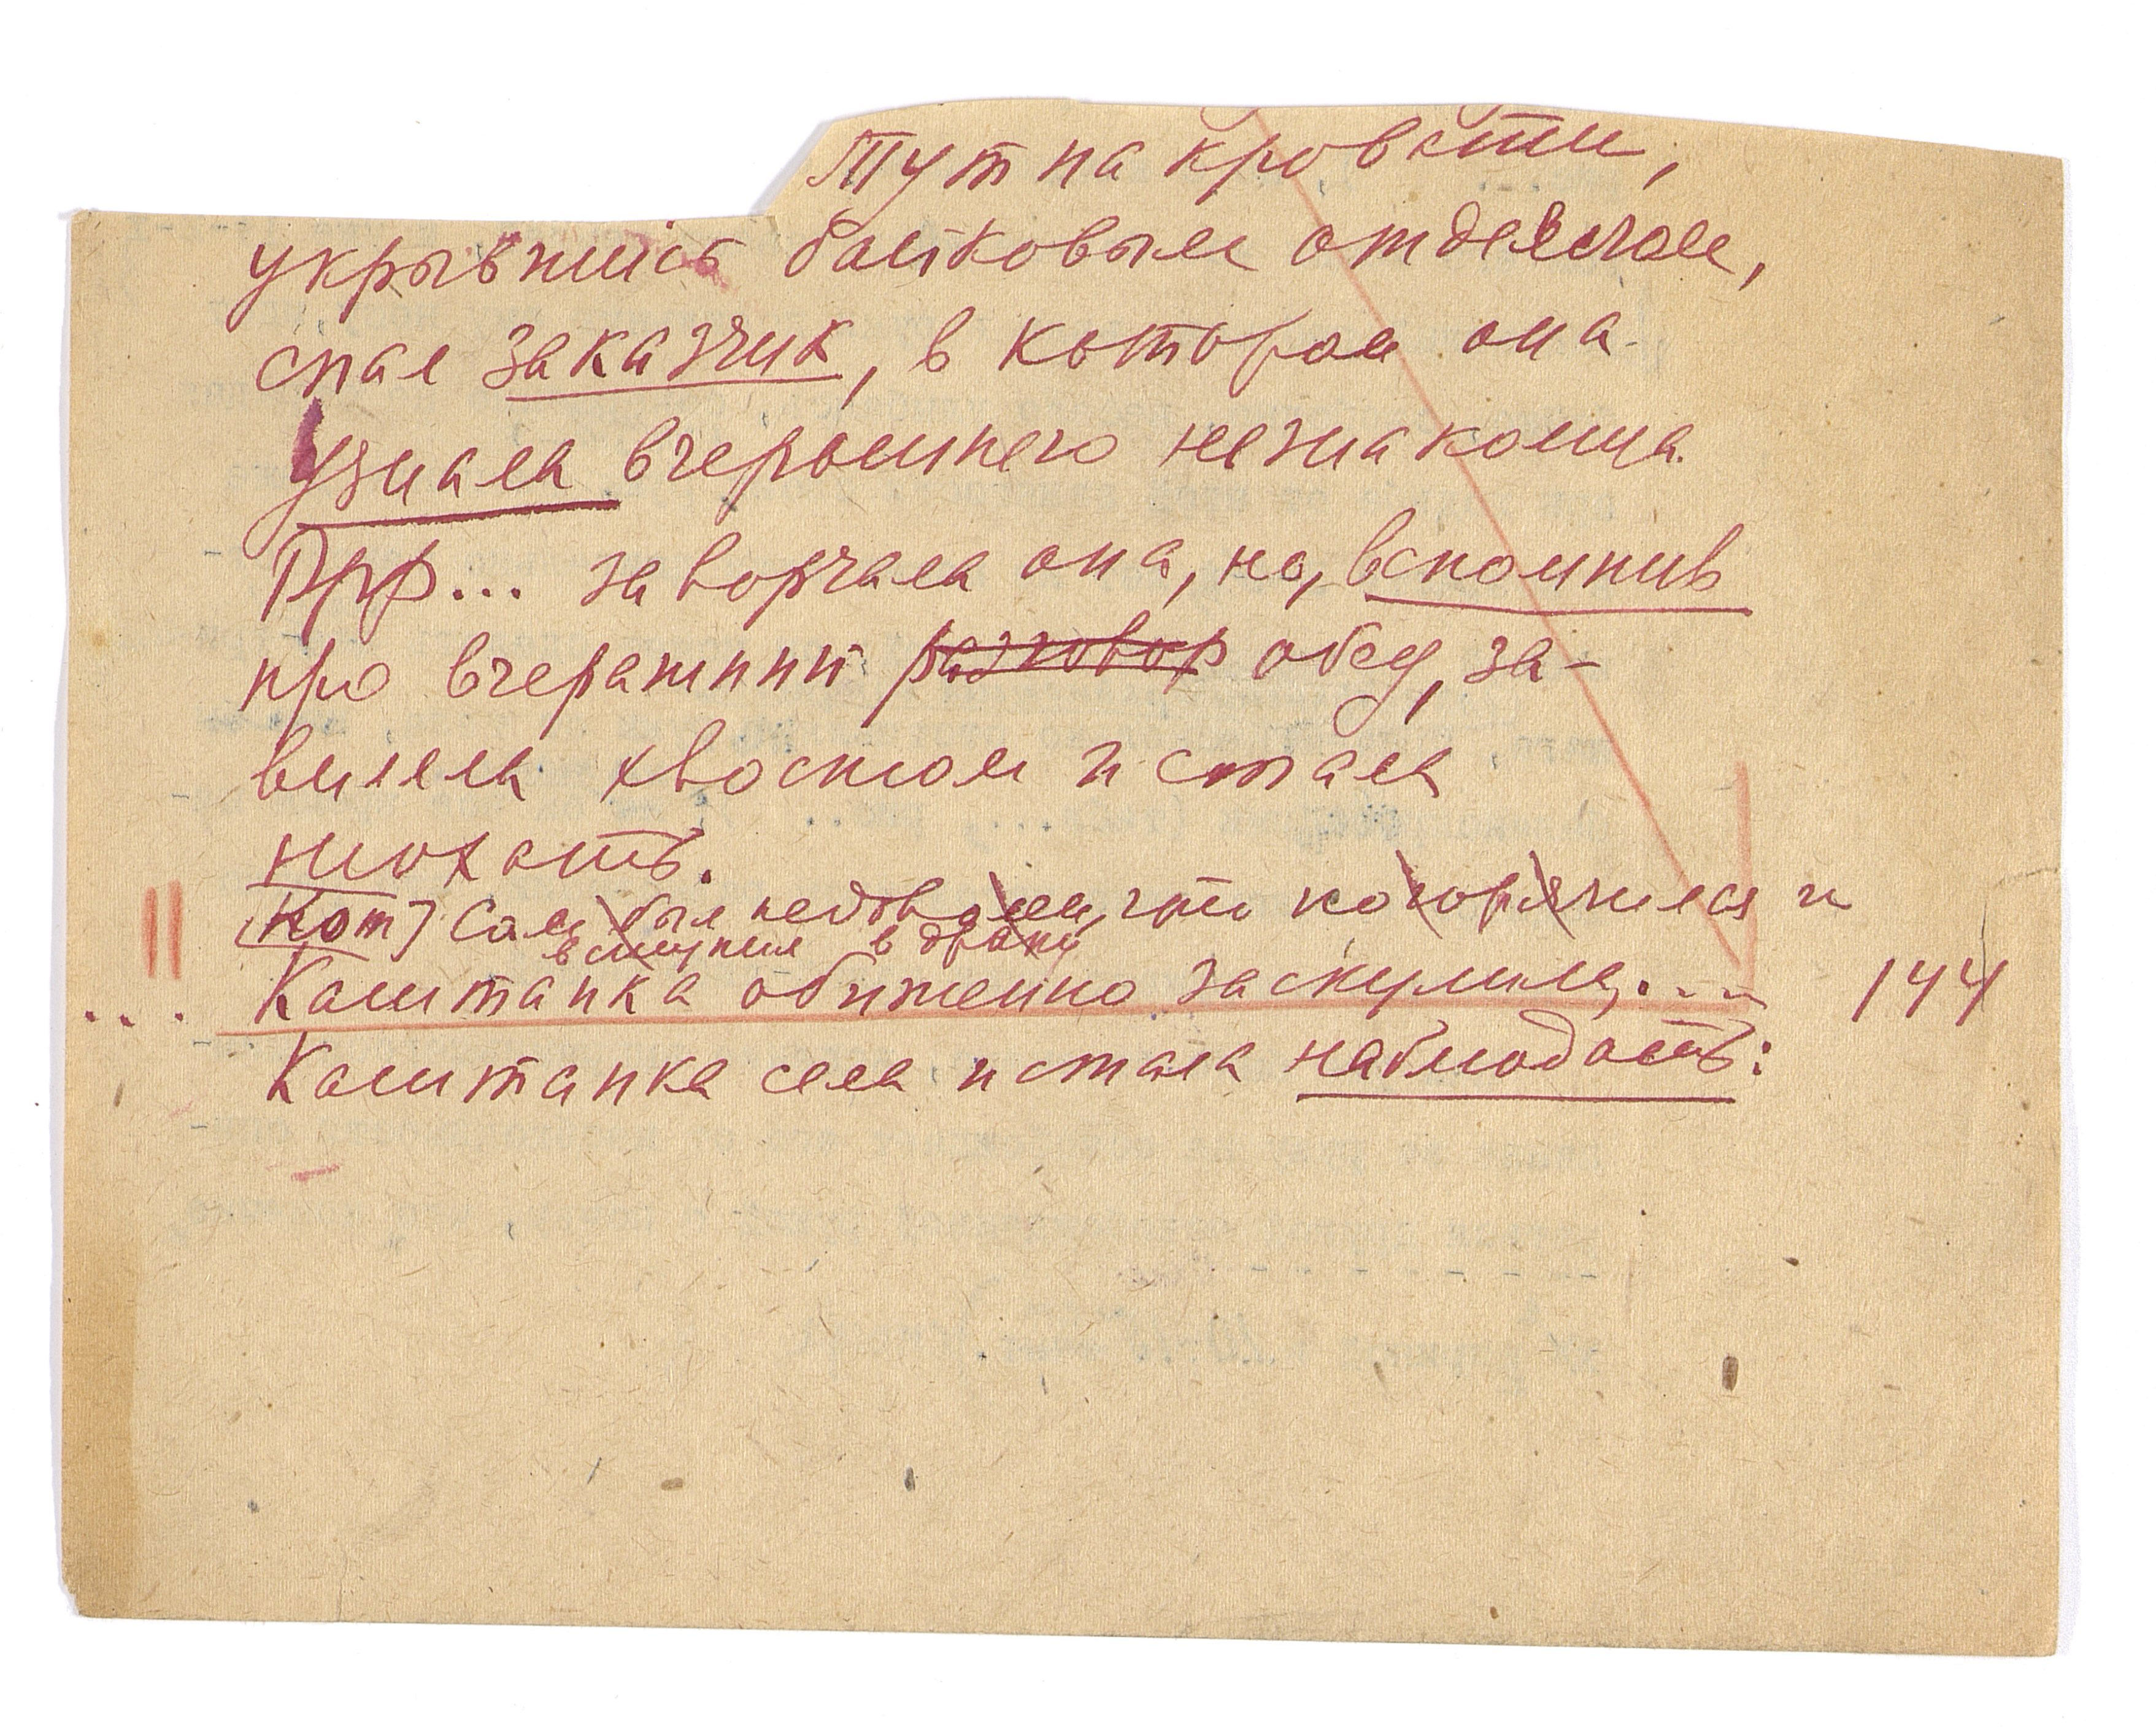 Тут на кровати,
укрывшись байковым отделом,
спал заказчик, в котором она
узнала вчерашнего незнакомца.
Ррр... заворчала она, но, вспомнив
про вчерашний разговор обед, за-
виляла хвостом и стала
нюхать.
[Кот] Сам был недоволен, что погорячился и
вступил в драку
... Каштанка обиженно заскулила, ... 144
Каштанка села и стала наблюдать: